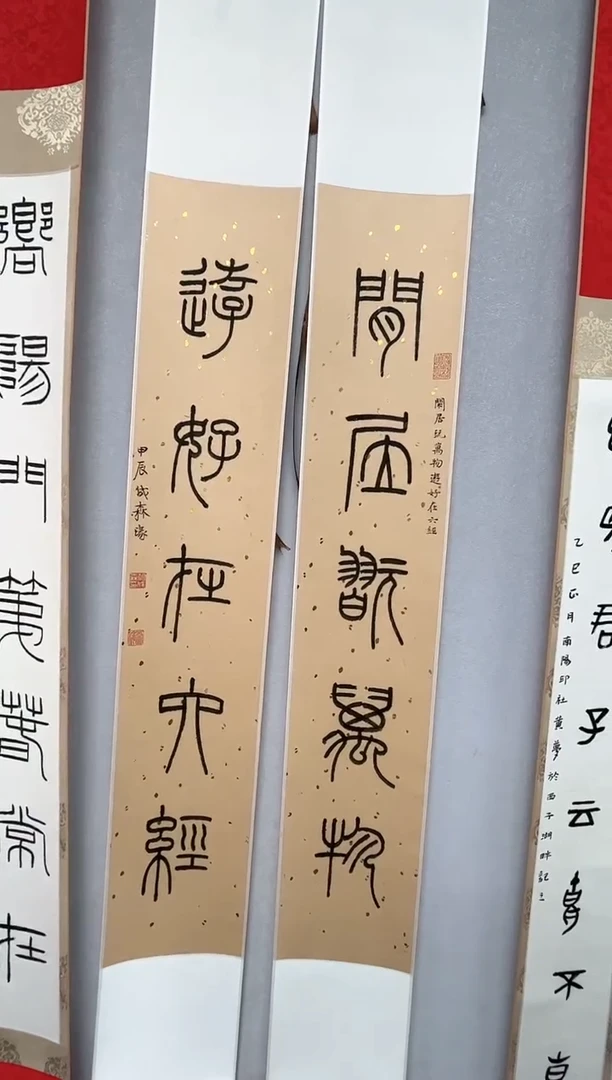 君子云
不
乙巳正月南陽印社黃夢於西子湖畔記之
閒居翫萬物
閒居玩萬物遊好在六經
遊好在六經
甲辰森
嚮陽門第春常在